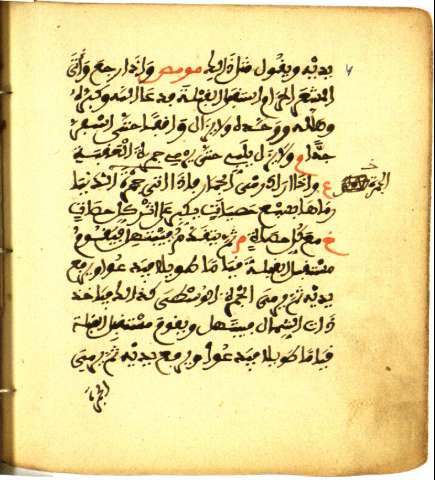 يديه ويقول مثل ذالك م م واذا رجع واتى
المشعر الحرام استقبل القبلة فدعا الله وكبره
وهلله ووحده ولا يزال واقفا حتى اسفر
جدا م ولا يزل يلبي حتى يرمي جمرة العقبة
ع واذا اراد رمي الجمار فاذا اتى الجمرة الدنيا
رماها بسبع حصيات يكبر على اثر كل حصاة
خ مع كل حصاة م ثم يتقدم فيسهل فيقوم
مستقبل القبلة قياما طويلا فيدعوا ويرفع
يديه ثم يرمي الجمرة الوسطى كذالك فياخذ
ذات الشمال فيسهل ويقوم مستقبل القبلة
قياما طويلا فيدعوا ويرفع يديه ثم يرمي
الجمرة